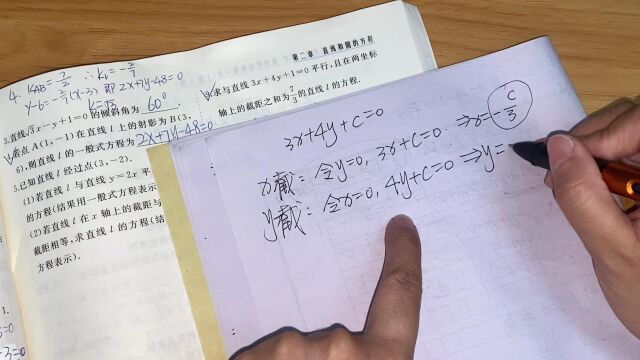 第二章 直线和圆的方程
4. K_AB = 7/2 ∴ k_l = -2/7
y-6 = -2/7(x-3) 即 2x+7y-48=0
3.直线√3x-y+1=0的倾斜角为 60°.
若点A(1,-1)在直线l上的射影为B(3,
6),则直线l的一般式方程为 2x+7y-48=0
5.已知直线l经过点(3,-2).
(1)若直线l与直线y=2x平
的方程(结果用一般式方程表示
(2)若直线l在x轴上的截距与
截距相等,求直线l的方程(结
方程表示).
求与直线3x+4y+1=0平行,且在两坐标
轴上的截距之和为7/3的直线l的方程.
3x+4y+c=0
x截:令y=0, 3x+c=0 ⇒x=-c/3
y截:令x=0, 4y+c=0 ⇒y=